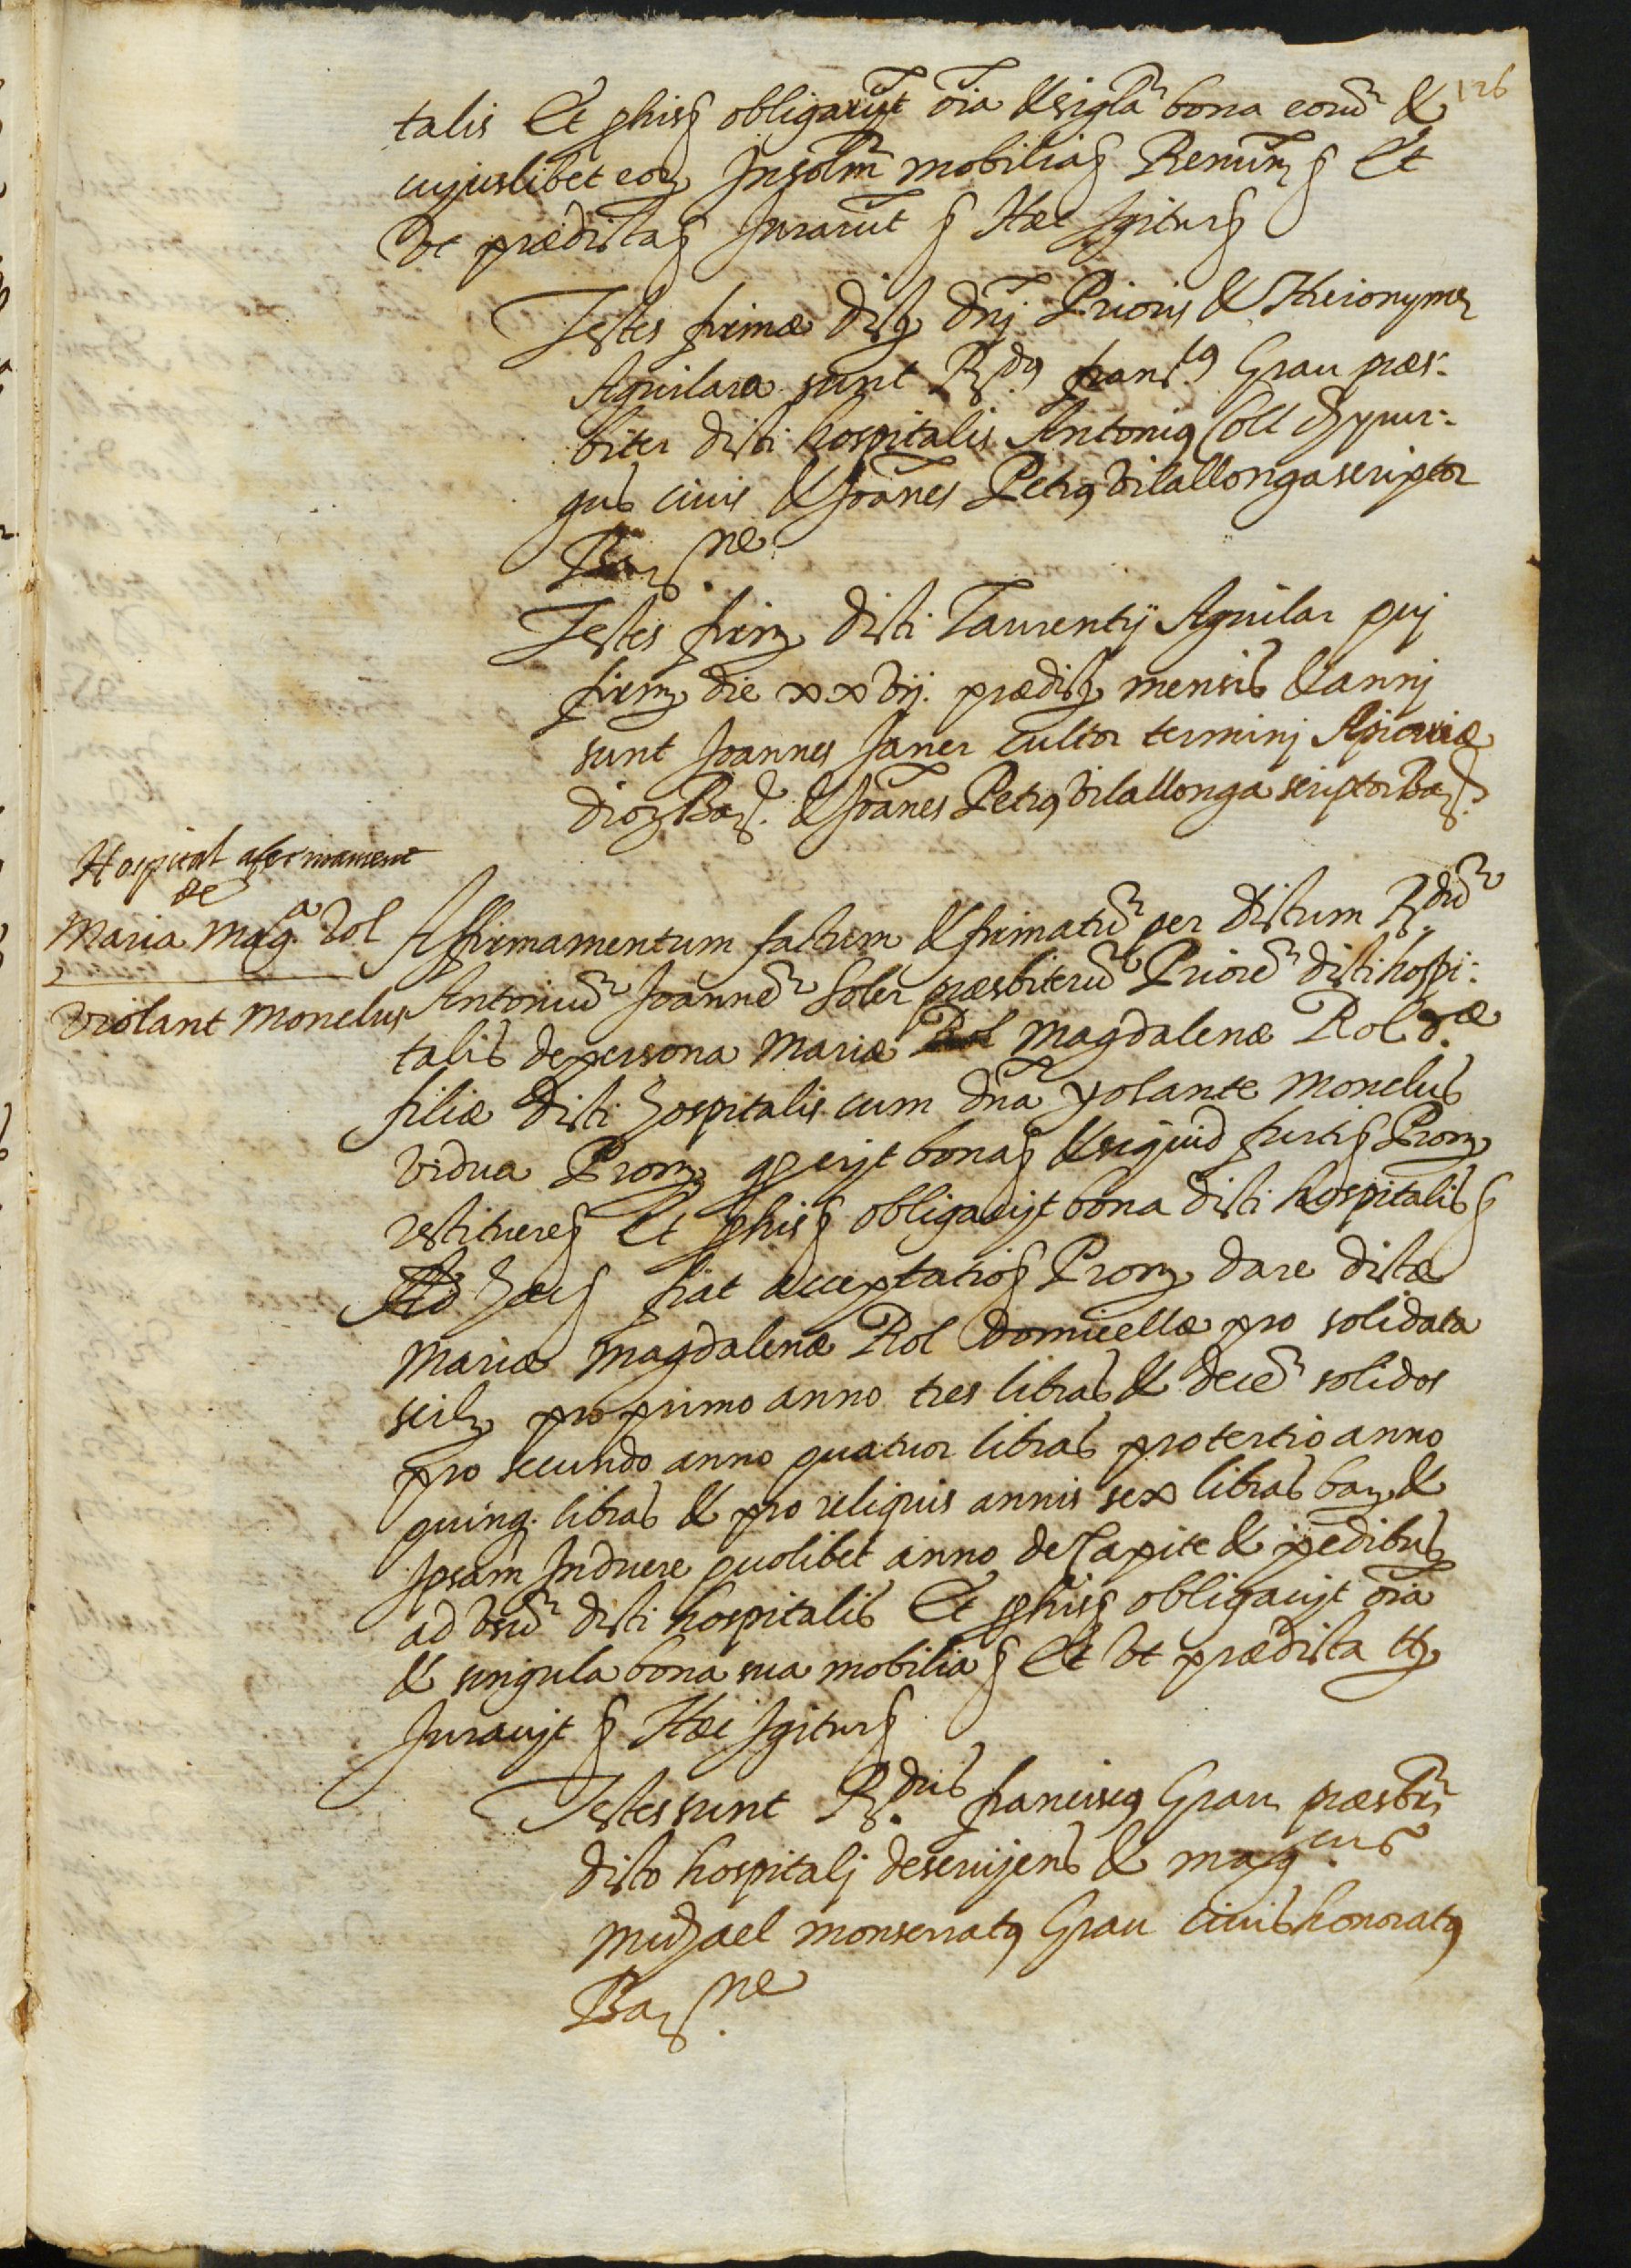 126
talis Et p his § obligarũt õia & sigla bona eorũ &
cujuslibet eor Insolm mobilia § Renunt § Et
Ut prædicta § Jurarũt § Hæc Igitur §
Testes firmæ dict dnj Prioris & Hieronymæ
Aguilara sunt R.dus Fran.cus Grau præs-
biter dicti hospitalis Antonius Coll chyrur-
gus civis & Joãnes Petrus Vilallonga scriptor
Bar.ne
Testes firm dicti Laurentij Aguilar qui
firm die xxvij. prædict mensis & annj
sunt Joannes Janer cultor terminj Apiariæ
dioc Bar. & Joãnes Petrus Vilallonga scriptor Bar.
Hospital afermament
de
Maria Mag.a Rol
Violant Monclus
Affirmamentum factum & firmatũ per dictum R.dũ
Antoniũ Joannẽ Soler præsbiterũ Priorẽ dicti hospi-
talis de persona Mariæ Magdalenæ Rol d.æ
filiæ dicti hospitalis cum dña Yolante Monclus
vidua Prom q erit bona § & siquid furti § Prom
restituere § Et p his § obligavit bona dicti hospitalis §
Ad hæc § fiat acceptatio § Prom dare dictæ
Mariæ Magdalenæ Rol Domicellæ pro solidata
scil pro primo anno tres libras & decẽ solidos
pro secundo anno quatuor libras pro tertio anno
quinq. libras & pro reliquis annis sex libras bar &
Ipsam Induere quolibet anno de Capite & pedibus
ad Usũ dicti hospitalis Et p his § obligavit õia
& singula bona sua mobilia § Et Ut prædicta
Juravit § Hæc Igitur §
Testes sunt R.dus Franciscus Grau præsbr
dicto hospitalj deservjens & mag.cus
Michael Monserratus Grau civis honoratus
Bar.ne